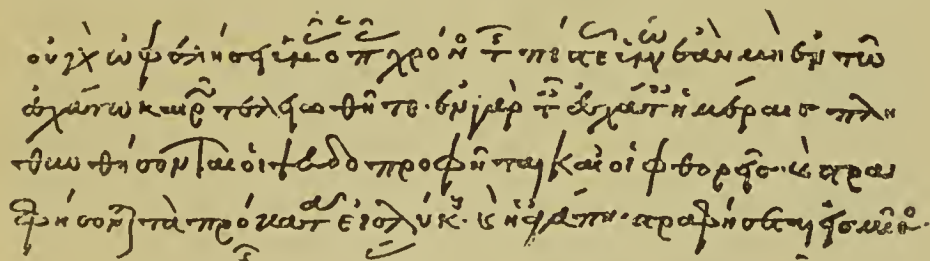 οὐ γὰρ ὠφελήσει ὑμᾶς ὁ πᾶς χρόνος τῆς πίστεως ὑμῶν ἐὰν μὴ ἐν τῶ
ἐσχάτω καιρῶ τελειωθῆτε· ἐν γὰρ ταῖς ἐσχάταις ἡμέραις πλη
θυνθήσονται οἱ ψευδοπροφῆται καὶ οἱ φθορεῖς· καὶ στρα
φήσονται τὰ πρόβατα εἰς λύκους· καὶ ἡ ἀγάπη στραφήσεται εἰς μῖσος·